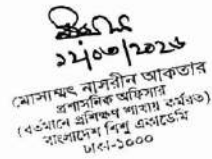 ১২/০৩/২০২৬
মোসাম্মৎ নাসরীন আকতার
প্রশাসনিক অফিসার
(বর্তমানে প্রশিক্ষণ শাখায় কর্মরত)
বাংলাদেশ শিশু একাডেমি
ঢাকা-১০০০